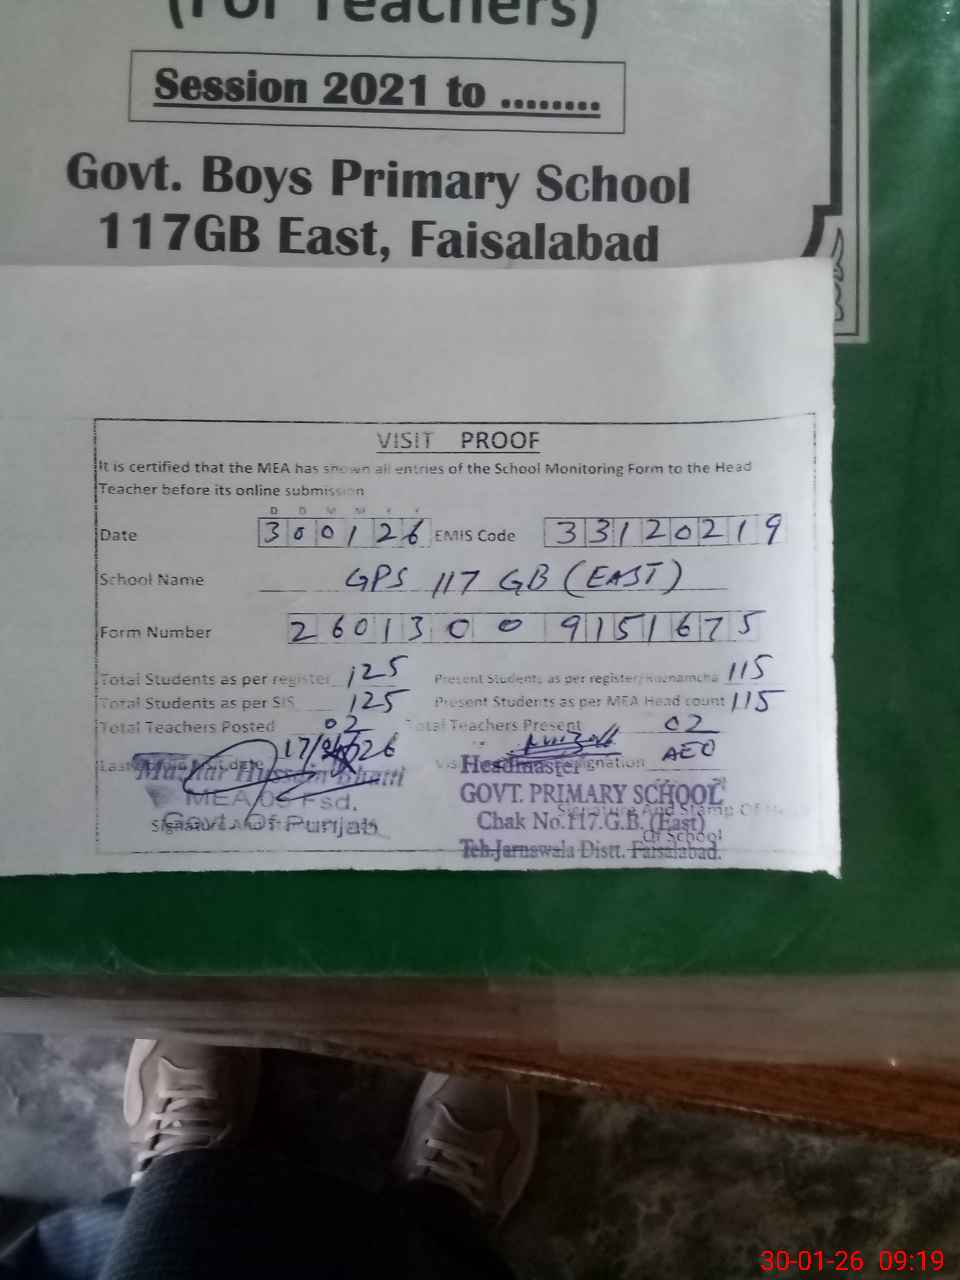 (For Teachers)
Session 2021 to ........
Govt. Boys Primary School
117GB East, Faisalabad
VISIT PROOF
It is certified that the MEA has shown all entries of the School Monitoring Form to the Head
Teacher before its online submission
D D M M Y Y
Date 300126 EMIS Code 33120219
School Name GPS 117 GB (EAST)
Form Number 2601300 09151675
Total Students as per register 125 Present Students as per register/Roznamcha 115
Total Students as per SIS 125 Present Students as per MEA Head count 115
Total Teachers Posted 02 Total Teachers Present 02
17/ 26 AEO
Mazhar Hussain Bhatti Headmaster
MEA Fsd. GOVT. PRIMARY SCHOOL
Signature And Stamp Of
Govt. Of Punjab Chak No.117.G.B. (East)
Of School
Teh.Jarnawala Distt. Faisalabad.
30-01-26 09:19